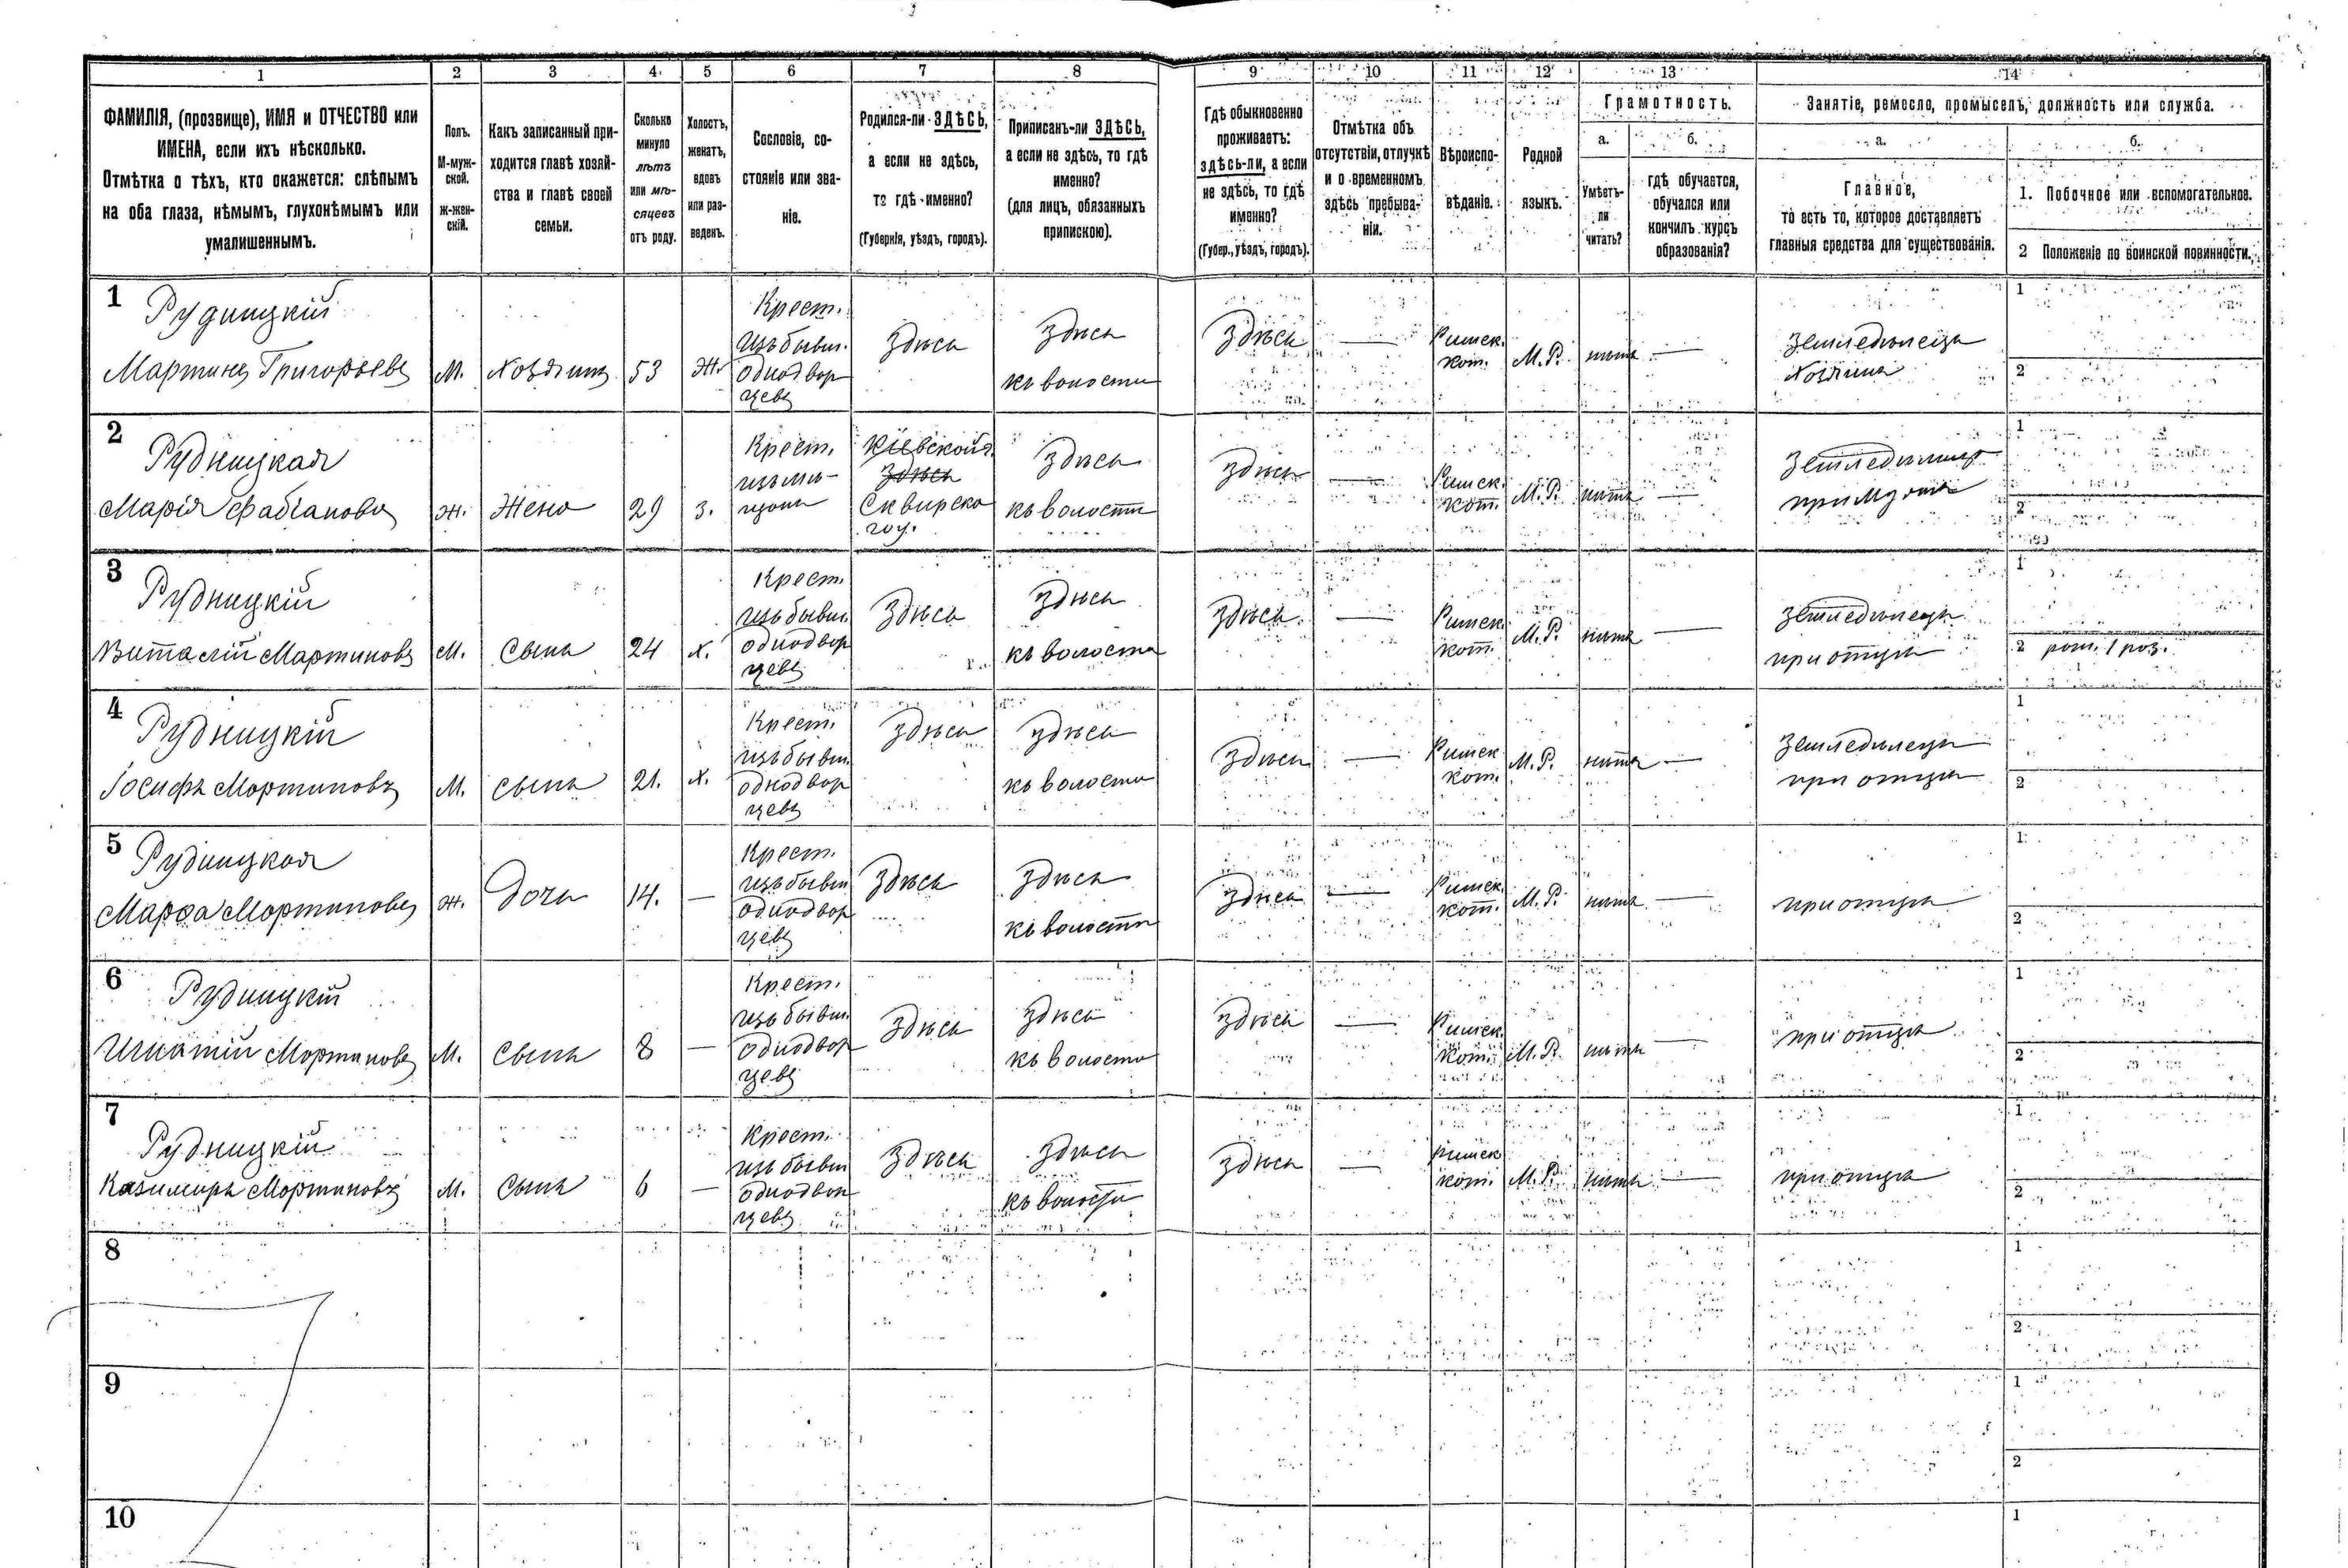 1 2 3 4. 5 6 7 8 9 10 11 12 13 14
ФАМИЛІЯ, (прозвище), ИМЯ и ОТЧЕСТВО или
ИМЕНА, если ихъ нѣсколько.
Отмѣтка о тѣхъ, кто окажется: слѣпымъ
на оба глаза, нѣмымъ, глухонѣмымъ или
умалишеннымъ.
Полъ.
М-муж-
ской.
ж-жен-
скій.
Какъ записанный при-
ходится главѣ хозяй-
ства и главѣ своей
семьи.
Сколько
минуло
лѣтъ
или мѣ-
сяцевъ
отъ роду.
Холостъ,
женатъ,
вдовъ
или раз-
веденъ.
Сословіе, со-
стояніе или зва-
ніе.
Родился-ли ЗДѢСЬ,
а если не здѣсь,
то гдѣ именно?
(Губернія, уѣздъ, городъ).
Приписанъ-ли ЗДѢСЬ,
а если не здѣсь, то гдѣ
именно?
(для лицъ, обязанныхъ
припискою).
Гдѣ обыкновенно
проживаетъ:
здѣсь-ли, а если
не здѣсь, то гдѣ
именно?
(Губер., уѣздъ, городъ).
Отмѣтка объ
отсутствіи, отлучкѣ
и о временномъ
здѣсь пребыва-
ніи.
Вѣроиспо-
вѣданіе.
Родной
языкъ.
Грамотность.
а.
Умѣетъ-
ли
читать?
б.
гдѣ обучается,
обучался или
кончилъ курсъ
образованія?
Занятіе, ремесло, промыселъ, должность или служба.
а.
Главное,
то есть то, которое доставляетъ
главныя средства для существованія.
б.
1. Побочное или вспомогательное.
2 Положеніе по воинской повинности.
1
Рудницкій
Мартинъ Григорьевъ
М.
Хозяинъ
53
Ж.
Крест.
изъ бывш.
однодвор
цевъ
Здѣсь
Здѣсь
къ волости
Здѣсь
—
Римск.
кат.
М.Р.
нѣтъ
—
Земледѣлецъ
Хозяинъ
1
2
2
Рудницкая
Марія Фабіанова
ж.
Жена
29
з.
Крест.
Кіевской г.
Здѣсь
Сквирска
го у.
Здѣсь
къ волости
Здѣсь
—
Римск.
кат.
М.Р.
нѣтъ
—
при мужѣ
1
2
3
Рудницкій
Виталій Мартиновъ
М.
Сынъ
24
х.
Крест.
изъ бывш.
однодвор
цевъ
Здѣсь
Здѣсь
къ волости
Здѣсь.
—
Римск.
кат.
М.Р.
нѣтъ
—
Земледѣлецъ
при отцѣ
1
2
4
Рудницкій
Іосифъ Мартиновъ
М.
Сынъ
21.
х.
Крест.
изъ бывш.
однодвор
цевъ
Здѣсь
Здѣсь
къ волости
Здѣсь
—
Римск.
кат.
М.Р.
нѣтъ
—
Земледѣлецъ
при отцѣ
1
2
5
Рудницкая
Марѳа Мартинова
ж.
Дочь
14.
—
Крест.
изъ бывш.
однодвор
цевъ
Здѣсь
Здѣсь
къ волости
Здѣсь
—
Римск.
кат.
М.Р.
нѣтъ
—
при отцѣ
1
2
6
Рудницкій
Игнатій Мартиновъ
М.
Сынъ
8
—
Крест.
изъ бывш.
однодвор
цевъ
Здѣсь
Здѣсь
къ волости
Здѣсь
—
Римск.
кат.
М.Р.
нѣтъ
—
при отцѣ
1
2
7
Рудницкій
Казимиръ Мартиновъ
М.
Сынъ
6
—
Крест.
изъ бывш
однодвор
цевъ
Здѣсь
Здѣсь
къ волости
Здѣсь
—
Римск
кат.
М.Р.
нѣтъ
—
при отцѣ
1
2
8
1
2
9
1
2
10
1